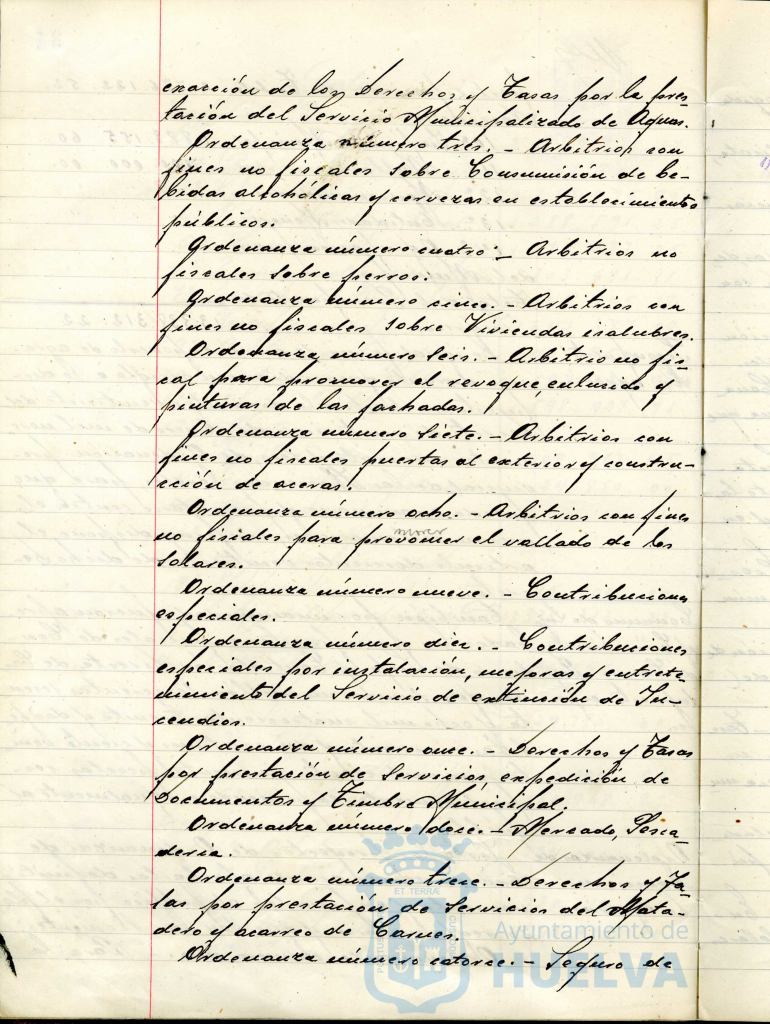 exacción de los Derechos y Tasas por la pres-
tación del Servicio Municipalizado de Aguas.
Ordenanza número tres. - Arbitrios con
fines no fiscales sobre Consumisión de be-
bidas alcohólicas y cervezas en establecimientos
públicos.
Ordenanza número cuatro: - Arbitrios no
fiscales sobre perros.
Ordenanza número cinco. - Arbitrios con
fines no fiscales sobre Viviendas isalubres.
Ordenanza número seis. - Arbitrio no fis-
cal para promover el revoque, enlucido y
pinturas de las fachadas.
Ordenanza número siete. - Arbitrios con
fines no fiscales puertas al exterior y constru-
cción de aceras.
Ordenanza número ocho. - Arbitrios con fines
mover
no fisciales para provomer el vallado de los
solares.
Ordenanza número nueve. - Contribuciones
especiales.
Ordenanza número diez. - Contribuciones
especiales por instalación, mejoras y entrete-
nimiento del Servicio de extinción de In-
cendios.
Ordenanza número once. - Derechos y Tasas
por prestación de Servicios, expedición de
Documentos y Timbre Municipal.
Ordenanza número doce. - Mercado, Pesca-
dería.
Ordenanza número trece. - Derechos y Ta-
sas por prestación de Servicios del Mata-
dero y acarreo de Carnes.
Ordenanza número catorce. - Seguro de
ET TERRÆ
Ayuntamiento de
HUELVA